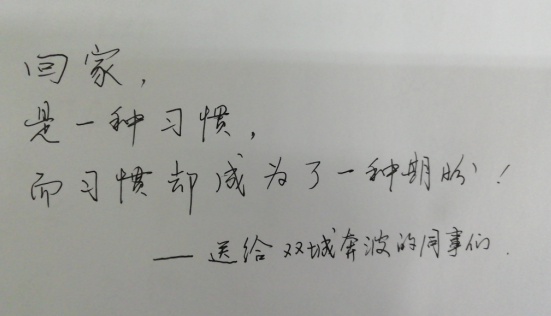 回家,
是一种习惯,
而习惯却成为了一种期盼!
——送给双城奔波的同事们.